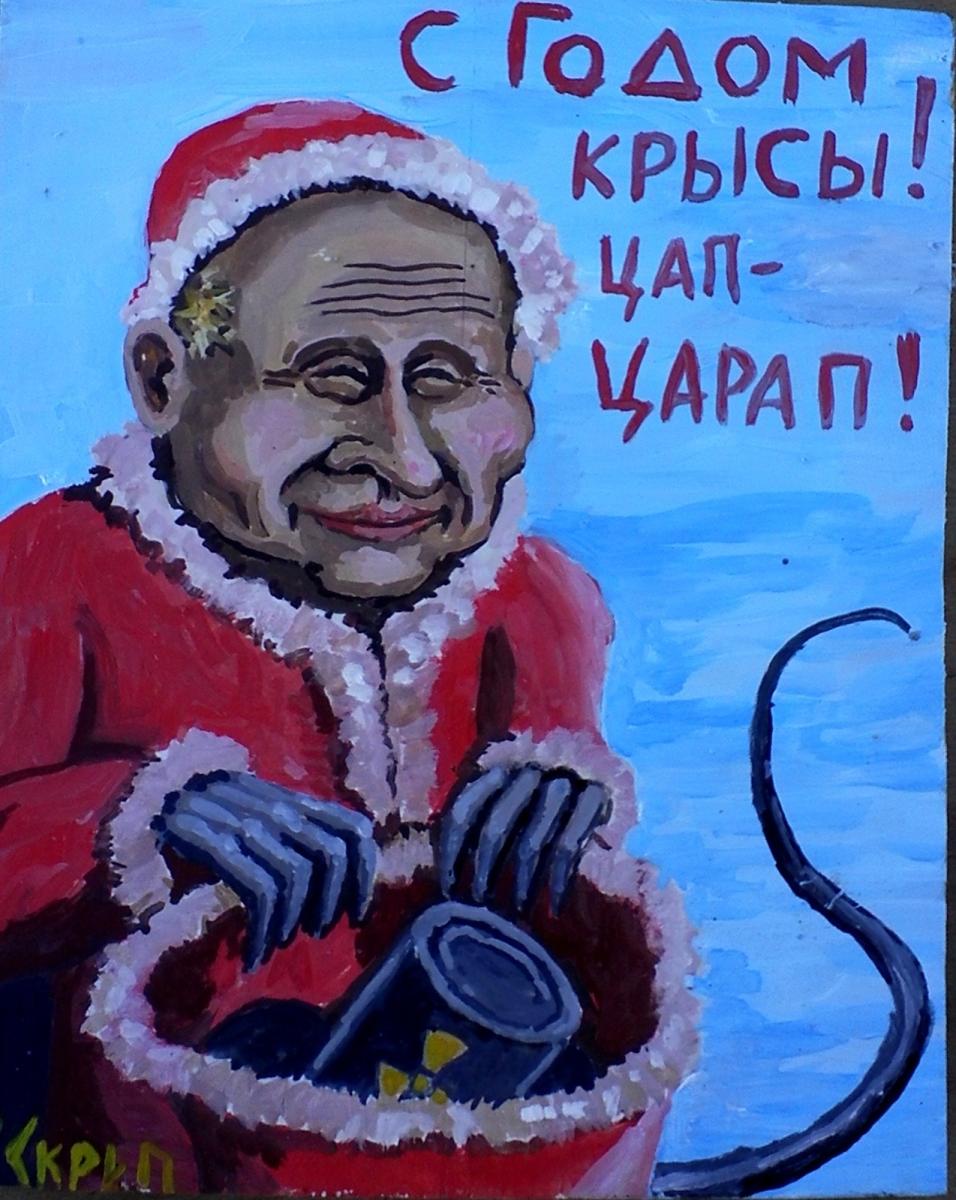 С ГОДОМ
КРЫСЫ!
ЦАП-
ЦАРАП!
СКРИП